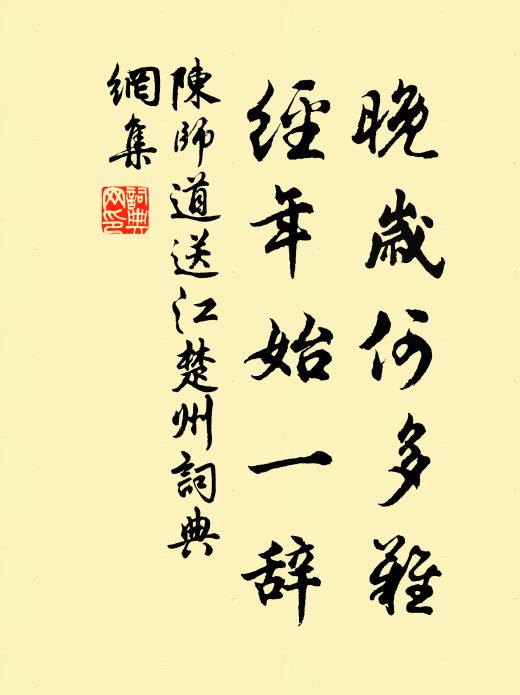 晚歲何多難
經年始一辭
陳師道送江楚州詞典
網集
詞典
网印